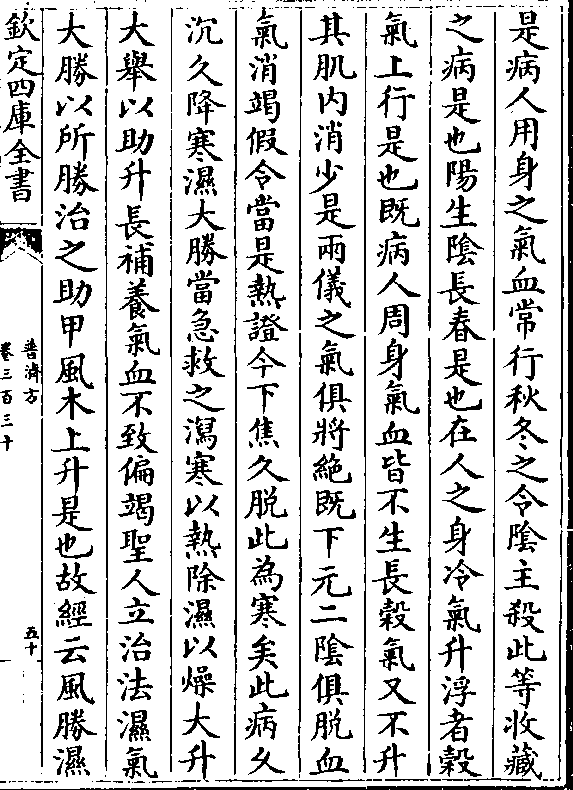 是病人用身之氣血常行秋冬之令陰主殺此等收藏
之病是也陽生陰長春是也在人之身冷氣升浮者穀
氣上行是也既病人周身氣血皆不生長穀氣又不升
其肌内消少是兩儀之氣俱將絶既下元二陰俱脱血
氣消竭假令當是熱證今下焦久脱此為寒矣此病久
沉久降寒濕大勝當急救之瀉寒以熱除濕以燥大升
大舉以助升長補養氣血不致偏竭聖人立治法濕氣
大勝以所勝治之助甲風木上升是也故經云風勝濕
欽定四庫全書
普濟方
卷三百三十
五十